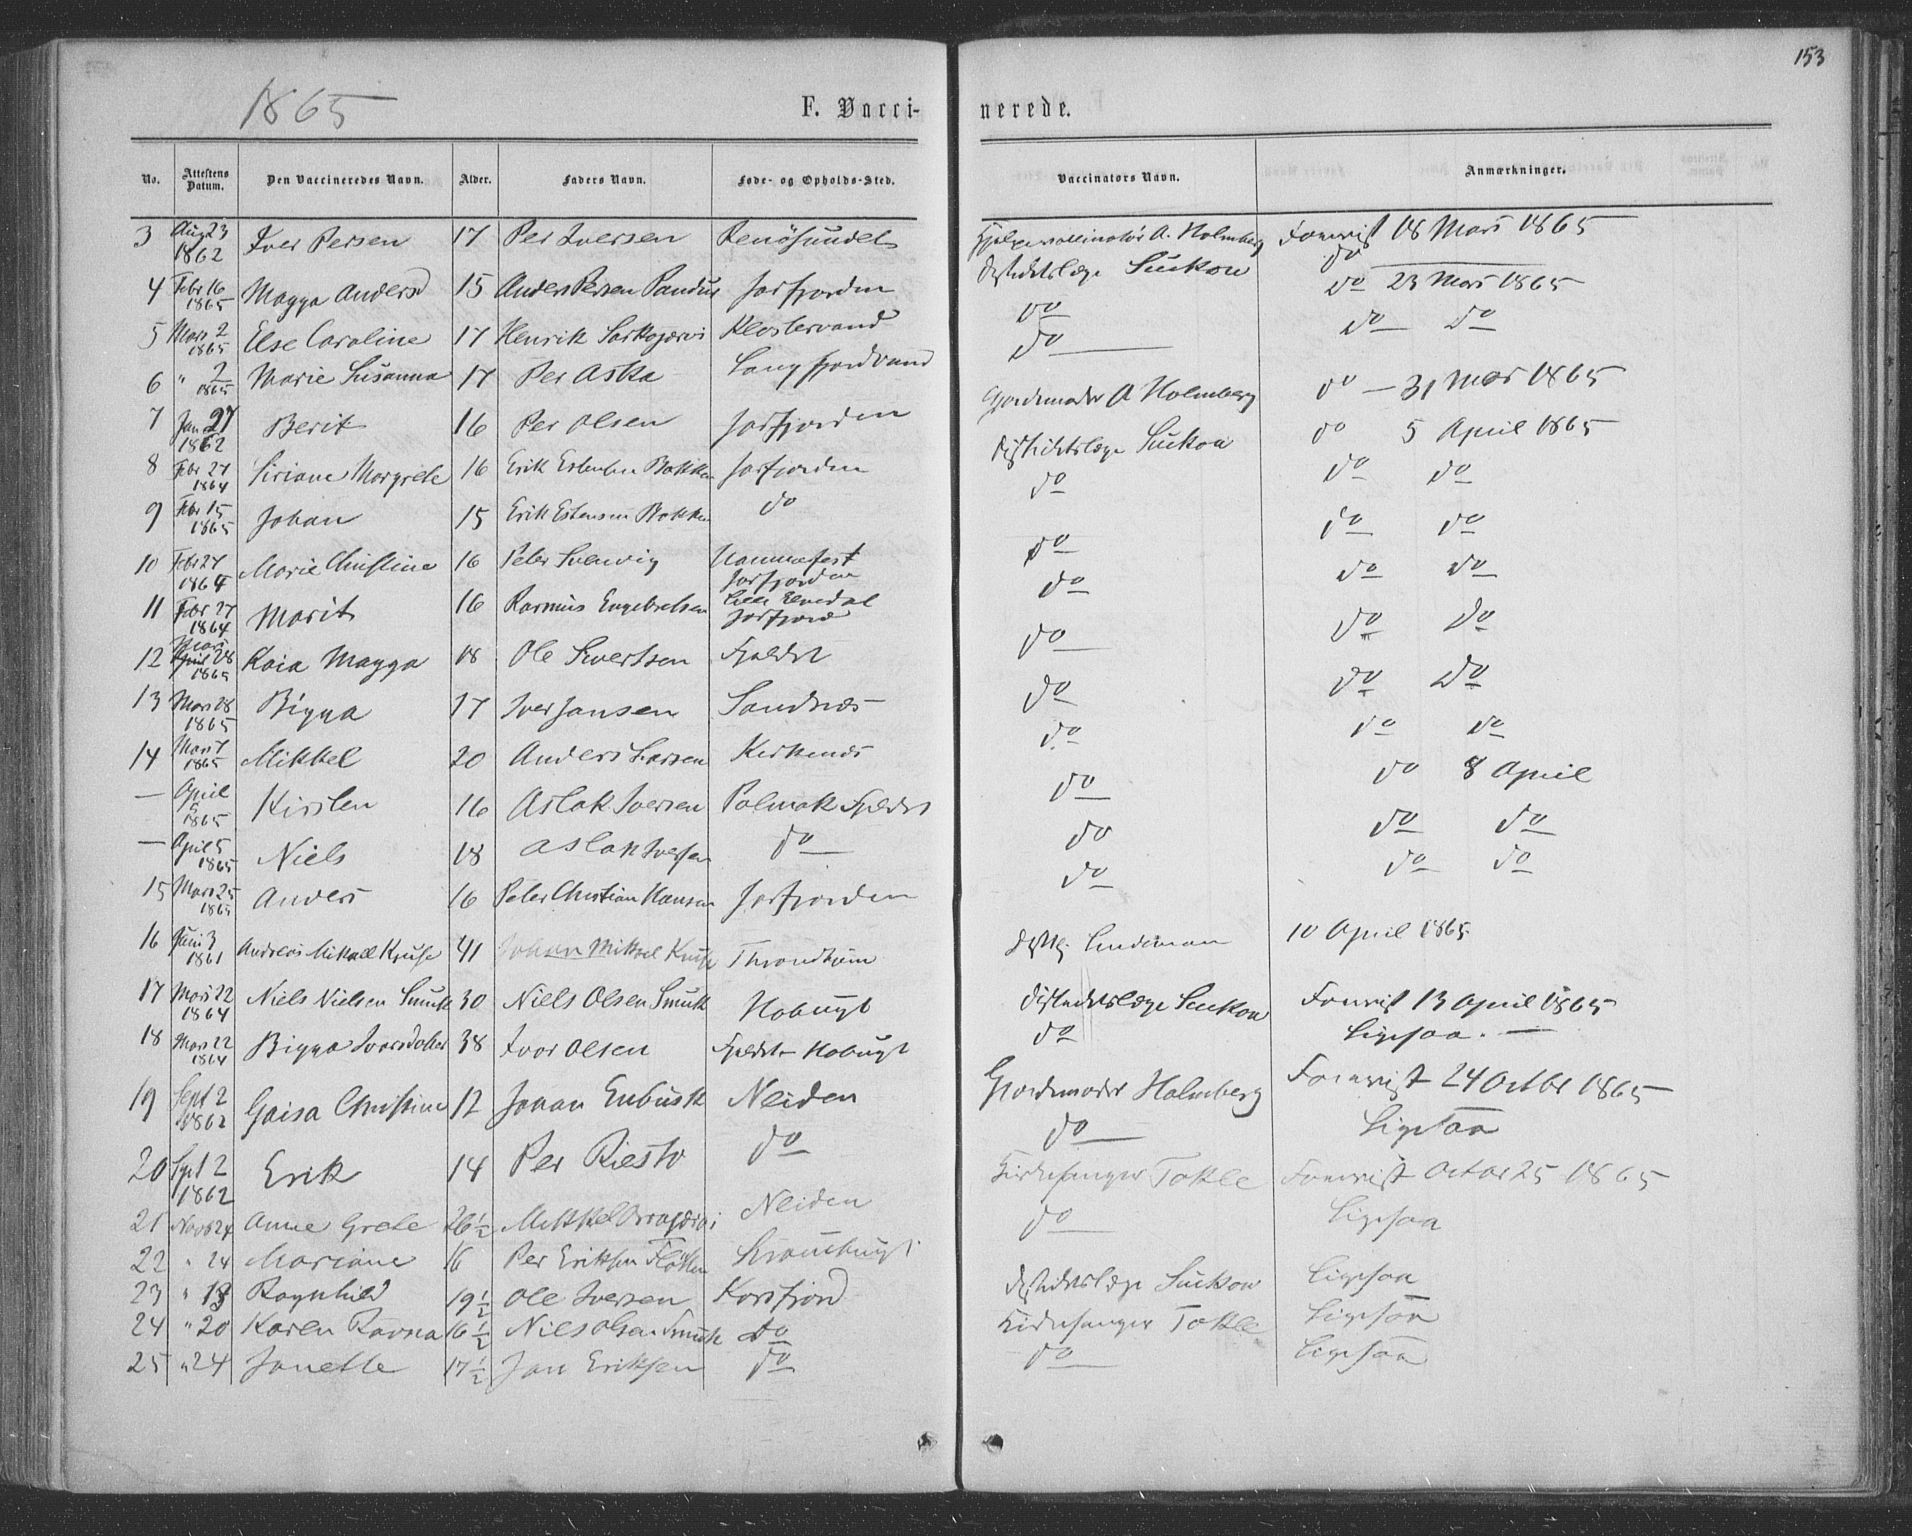 153
1865
F. Vacci-nerede.
No. Attestens Datum. Den Vaccineredes Navn. Alder. Faders Navn. Føde- og Opholds-Sted. Vaccinators Navn. Anmærkninger.
3 Aug 23 1862 Iver Persen 17 Per Iversen Renösundet Hjelpevaccinatør A. Holmberg Foreviist 18 Mars 1865
4 Febr 16 1865 Magga Andersd 15 Anders Persen Pandus Jarfjorden Distriktslæge Suckow do 23 Mars 1865
5 Mars 2 1865 Else Caroline 17 Henrik Klostervand do do do
6 " 2 1865 Marie Susanna 17 Per Aska Langfjordvand do
7 Jan 27 1862 Berit 16 Per Olsen Jarfjorden Gjordemoder A Holmberg do – 31 Mars 1865
8 Febr 27 1864 Siriane Margrete 16 Erik Estensen Bakken Jarfjorden Distriktslæge Suckow do 5 April 1865
9 Febr 15 1865 Johan 15 Erik Estensen Bakken do do do do
10 Febr 27 1864 Marie Christine 16 Peter Hammerfest Jarfjorden do do do
11 Febr 27 1864 Marit 16 Rasmus Engebretsen Lille Elvedal Jarfjord do do do
12 Mars 28 1865 Kaia Magga 18 Ole Sivertsen Fjeldet do do do
13 Mars 28 1865 Bigga 17 Iver Jansen Sandnæs do do do
14 Mars 7 1865 Mikkel 20 Anders Larsen Kirkenæs do do do
— April 5 1865 Kirsten 16 Aslak Iversen Polmak Fjeldet do do 8 April
— April 5 1865 Niels 18 Aslak Iversen do do do do
15 Mars 25 1865 Anders 16 Peter Christian Hansen Jarfjorden do do do
16 Juni 3 1861 Andreas Mikael Kruse 41 Johan Mikael Kruse Throndhjem Lindeman 10 April 1865
17 Mars 22 1864 Niels Nielsen Smuk 30 Niels Olsen Smuk Hobugt Distriktslæge Suckow Foreviist 13 April 1865
18 Mars 22 1864 Bigga Iversdatter 38 Ivar Olsen Fjeldet – Hobugt do Ligesaa. —
19 Sept 2 1862 Gaisa Christine 12 Johan Enbusk Neiden Gjordemoder Holmberg Foreviist 24 Octbr 1865
20 Sept 2 1862 Erik 14 Per Riesto do do Ligesaa
21 Novb 24 Anne Grete 26½ Mikkel Neiden Kirkesanger Tokle Foreviist Octbr 25 1865
22 " 24 Mariane 16 Per Eriksen Fløtten do Ligesaa
23 " 18 Ragnhild 19½ Ole Iversen Korsfjord Distriktslæge Suckow Ligesaa
24 " 20 Karen Ravna 16½ Niels Olsen Smuk do Kirkesanger Tokle Ligesaa
25 " 24 Janette 17½ Jan Eriksen do do Ligesaa